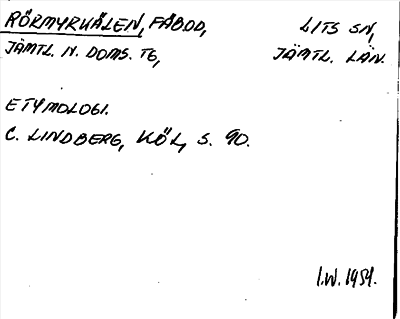 RÖRMYRHÅLEN, FÄBOD, LITS SN,
JÄMTL. N. DOMS. TG, JÄMTL. LÄN.
ETYMOLOGI.
C. LINDBERG, KÖL, S. 90.
I.W. 1959.